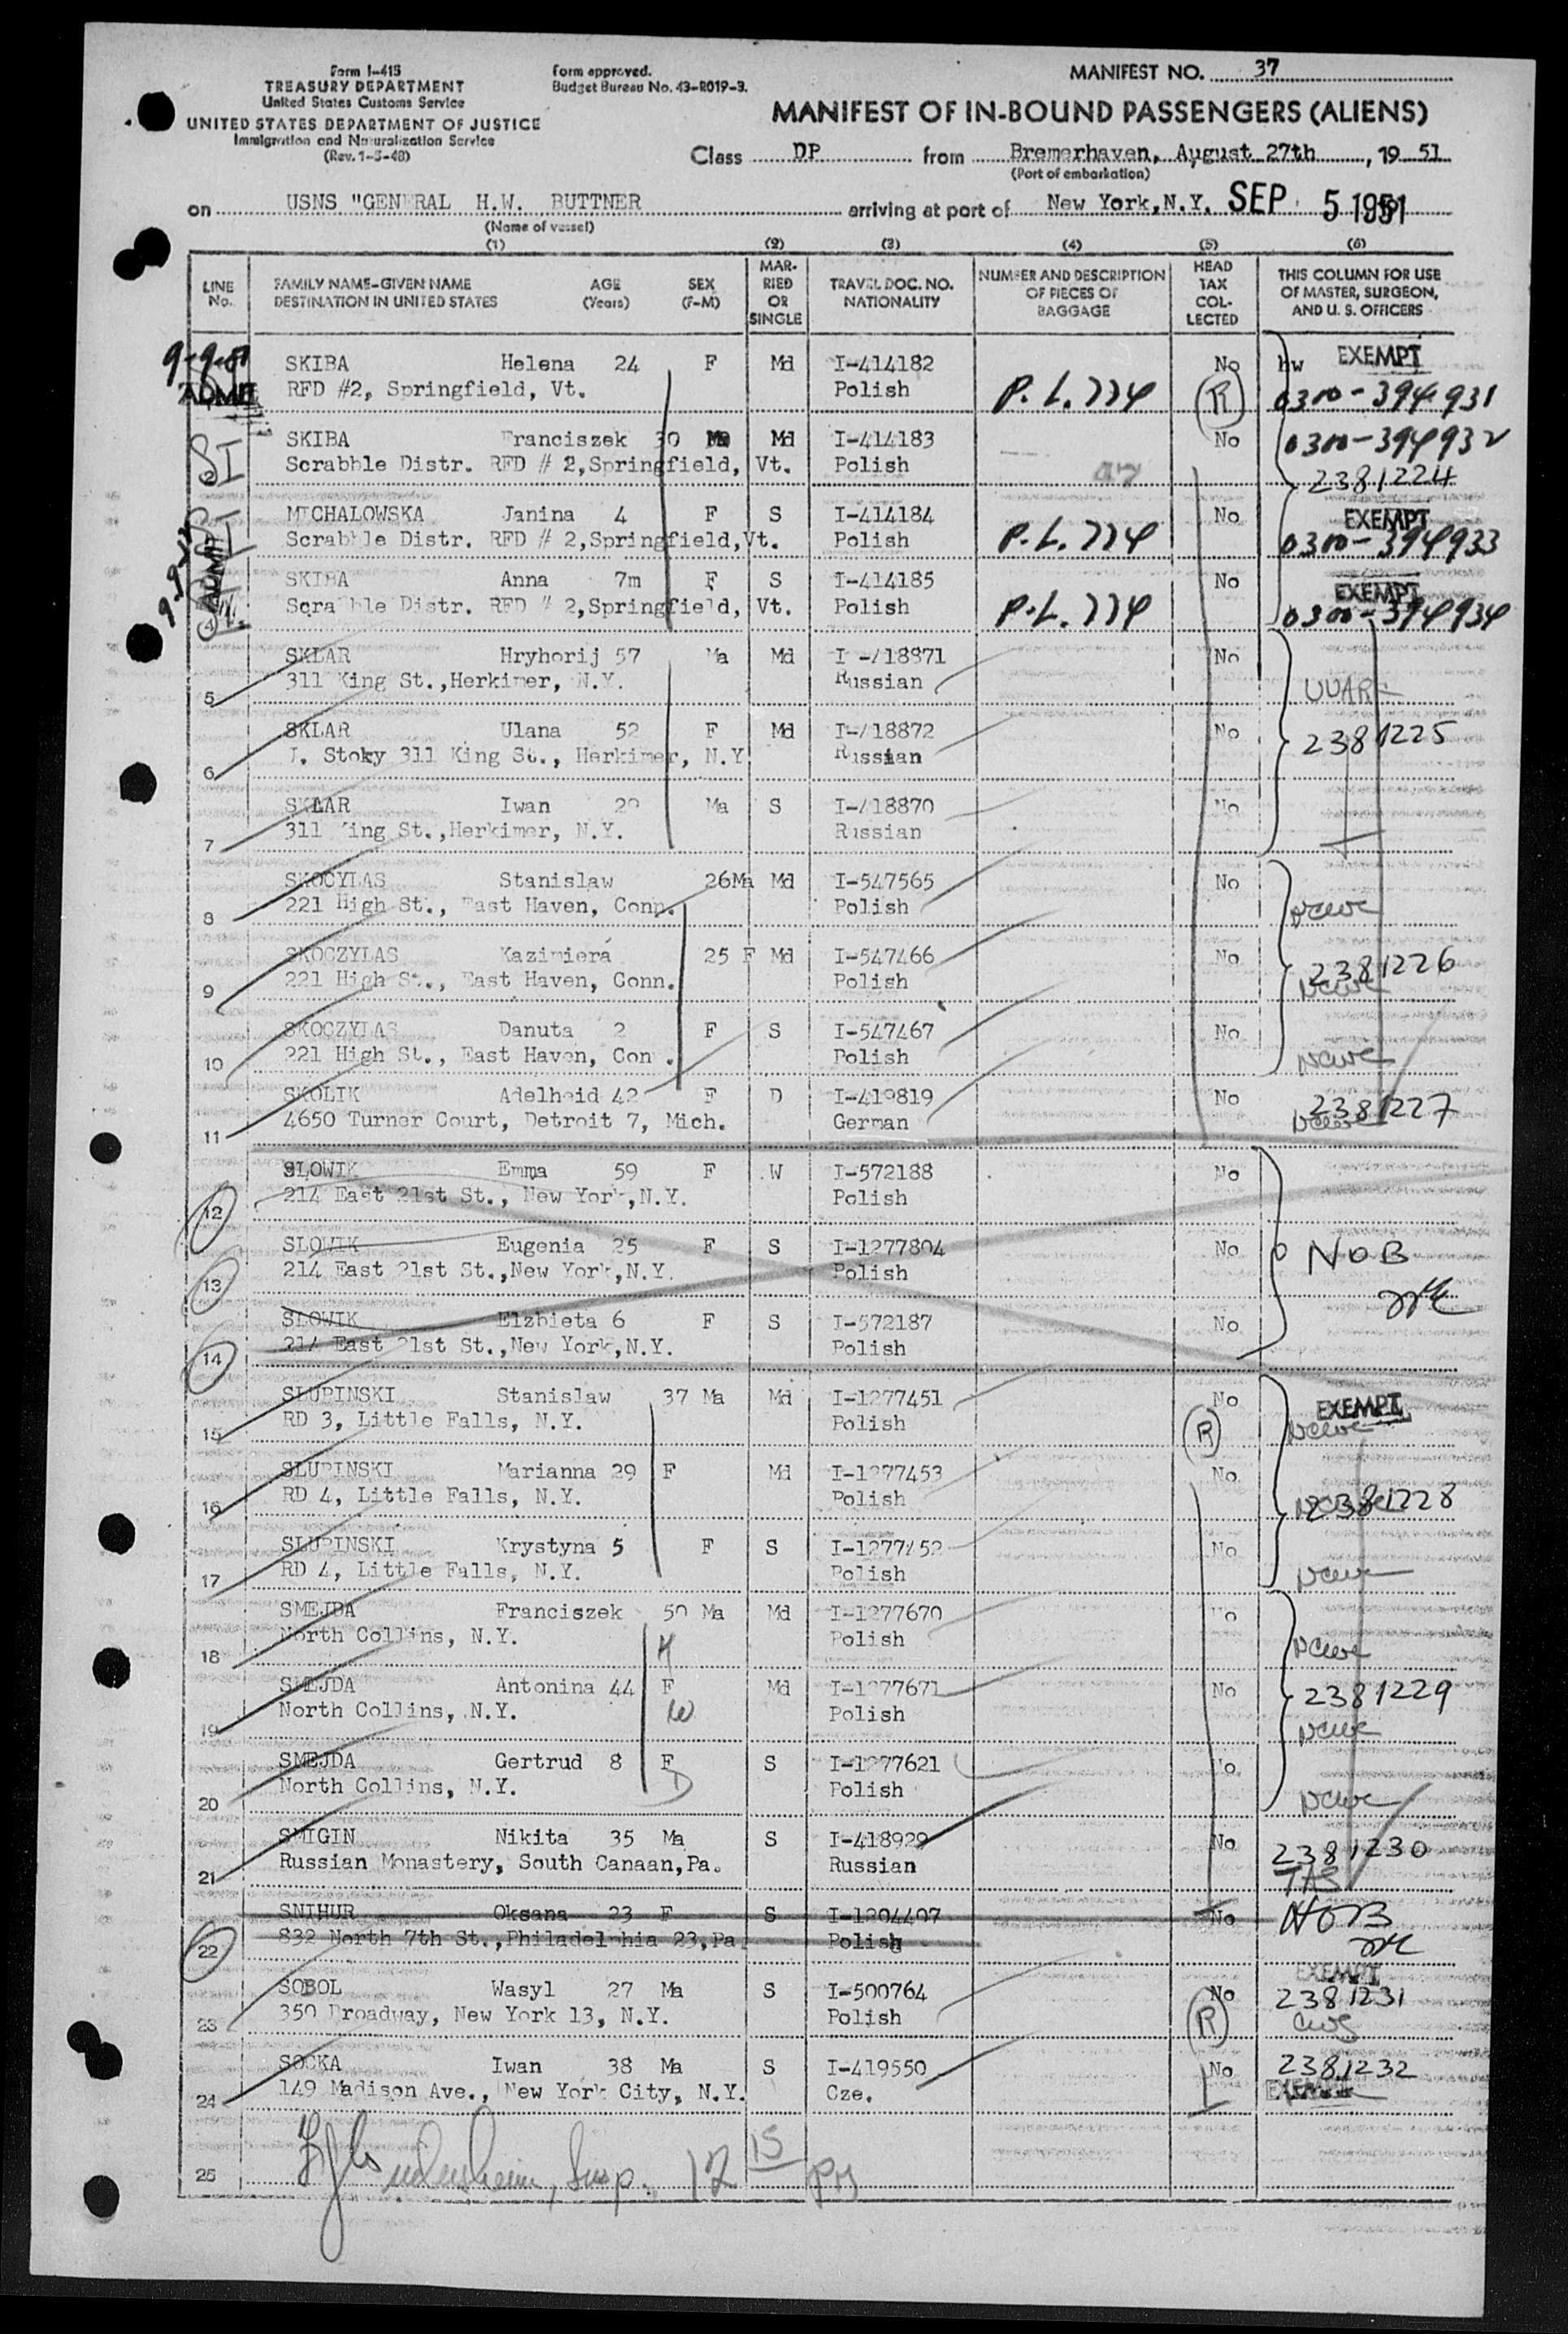 Form I-415
TREASURY DEPARTMENT
United States Customs Service
UNITED STATES DEPARTMENT OF JUSTICE
Immigration and Naturalization Service
(Rev. 1-5-48)
Form approved.
Budget Bureau No. 43-R019-3.
MANIFEST NO. 37
MANIFEST OF IN-BOUND PASSENGERS (ALIENS)
Class DP from Bremerhaven, August 27th, 19 51
(Port of embarkation)
on USNS "GENERAL H.W. BUTTNER arriving at port of New York, N.Y. SEP 5 1951
(Name of vessel)
(1) (2) (3) (4) (5) (6)
LINE No. FAMILY NAME-GIVEN NAME DESTINATION IN UNITED STATES AGE (Years) SEX (F-M) MARRIED OR SINGLE TRAVEL DOC. NO. NATIONALITY NUMBER AND DESCRIPTION OF PIECES OF BAGGAGE HEAD TAX COLLECTED THIS COLUMN FOR USE OF MASTER, SURGEON, AND U. S. OFFICERS
9-9-51 SKIBA Helena 24 F Md I-414182 No hw EXEMPT
ADMIT RFD #2, Springfield, Vt. Polish P.L. 774 R 0300-394931
SKIBA Franciszek 30 Ma Md I-414183 No 0300-394932
2 SI Scrabble Distr. RFD # 2,Springfield, Vt. Polish 2381224
MICHALOWSKA Janina 4 F S I-414184 No EXEMPT
SI ADMIT Scrabble Distr. RFD # 2,Springfield,Vt. Polish P.L. 774 0300-394933
SKIBA Anna 7m F S I-414185 No EXEMPT
4 Scrabble Distr. RFD # 2,Springfield, Vt. Polish P.L. 774 0300-394934
SKLAR Hryhorij 57 Ma Md I-418871 No
5 311 King St.,Herkimer, N.Y. Russian UUARC
SKLAR Ulana 52 F Md I-418872 No 2381225
6 Stoky 311 King St., Herkimer, N.Y Russian
SKLAR Iwan Ma S I-418870 No
7 311 King St.,Herkimer, N.Y. Russian
SKOCYLAS Stanislaw 26Ma Md I-547565 No
8 221 High St., East Haven, Conn. Polish NCWC
SKOCZYLAS Kazimiera 25 F Md I-547466 No 2381226
9 221 High St., East Haven, Conn. Polish NCWC
SKOCZYLAS Danuta 2 F S I-547467 No
10 221 High St., East Haven, Con . Polish NCWC
SKOLIK Adelheid 42 F D I-419819 No 2381227
11 4650 Turner Court, Detroit 7, Mich. German NCWC
SLOWIK Emma 59 F W I-572188 No
12 214 East 21st St., New York,N.Y. Polish
SLOWIK Eugenia 25 F S I-1277804 No NOB
13 214 East 21st St.,New York,N.Y. Polish
SLOWIK Elzbieta 6 F S I-572187 No
14 214 East 21st St.,New York,N.Y. Polish
SLUPINSKI Stanislaw 37 Ma Md I-1277451 No EXEMPT
15 RD 3, Little Falls, N.Y. Polish R NCWC
SLUPINSKI Marianna 29 F Md I-1277453 No
16 RD 4, Little Falls, N.Y. Polish NCWC 2381228
SLUPINSKI Krystyna 5 F S I-1277452 No
17 RD 4, Little Falls, N.Y. Polish NCWC
SMEJDA Franciszek 50 Ma Md I-1277670 No
18 North Collins, N.Y. H Polish NCWC
SMEJDA Antonina 44 F Md I-1277671 No 2381229
19 North Collins, N.Y. W Polish NCWC
SMEJDA Gertrud 8 F S I-1277621 No
20 North Collins, N.Y. D Polish NCWC
SMIGIN Nikita 35 Ma S I-418929 No 2381230
21 Russian Monastery, South Canaan,Pa. Russian TAS
SNIHUR Oksana 23 F S I-1204407 No NOB
22 832 North 7th St.,Philadelphia 23,Pa Polish
EXEMPT
SOBOL Wasyl 27 Ma S I-500764 No 2381231
23 350 Broadway, New York 13, N.Y. Polish R CWS
SOCKA Iwan 38 Ma S I-419550 No 2381232
24 149 Madison Ave., New York City, N.Y. Cze. EXEMPT
25 Insp. 12 15 PM